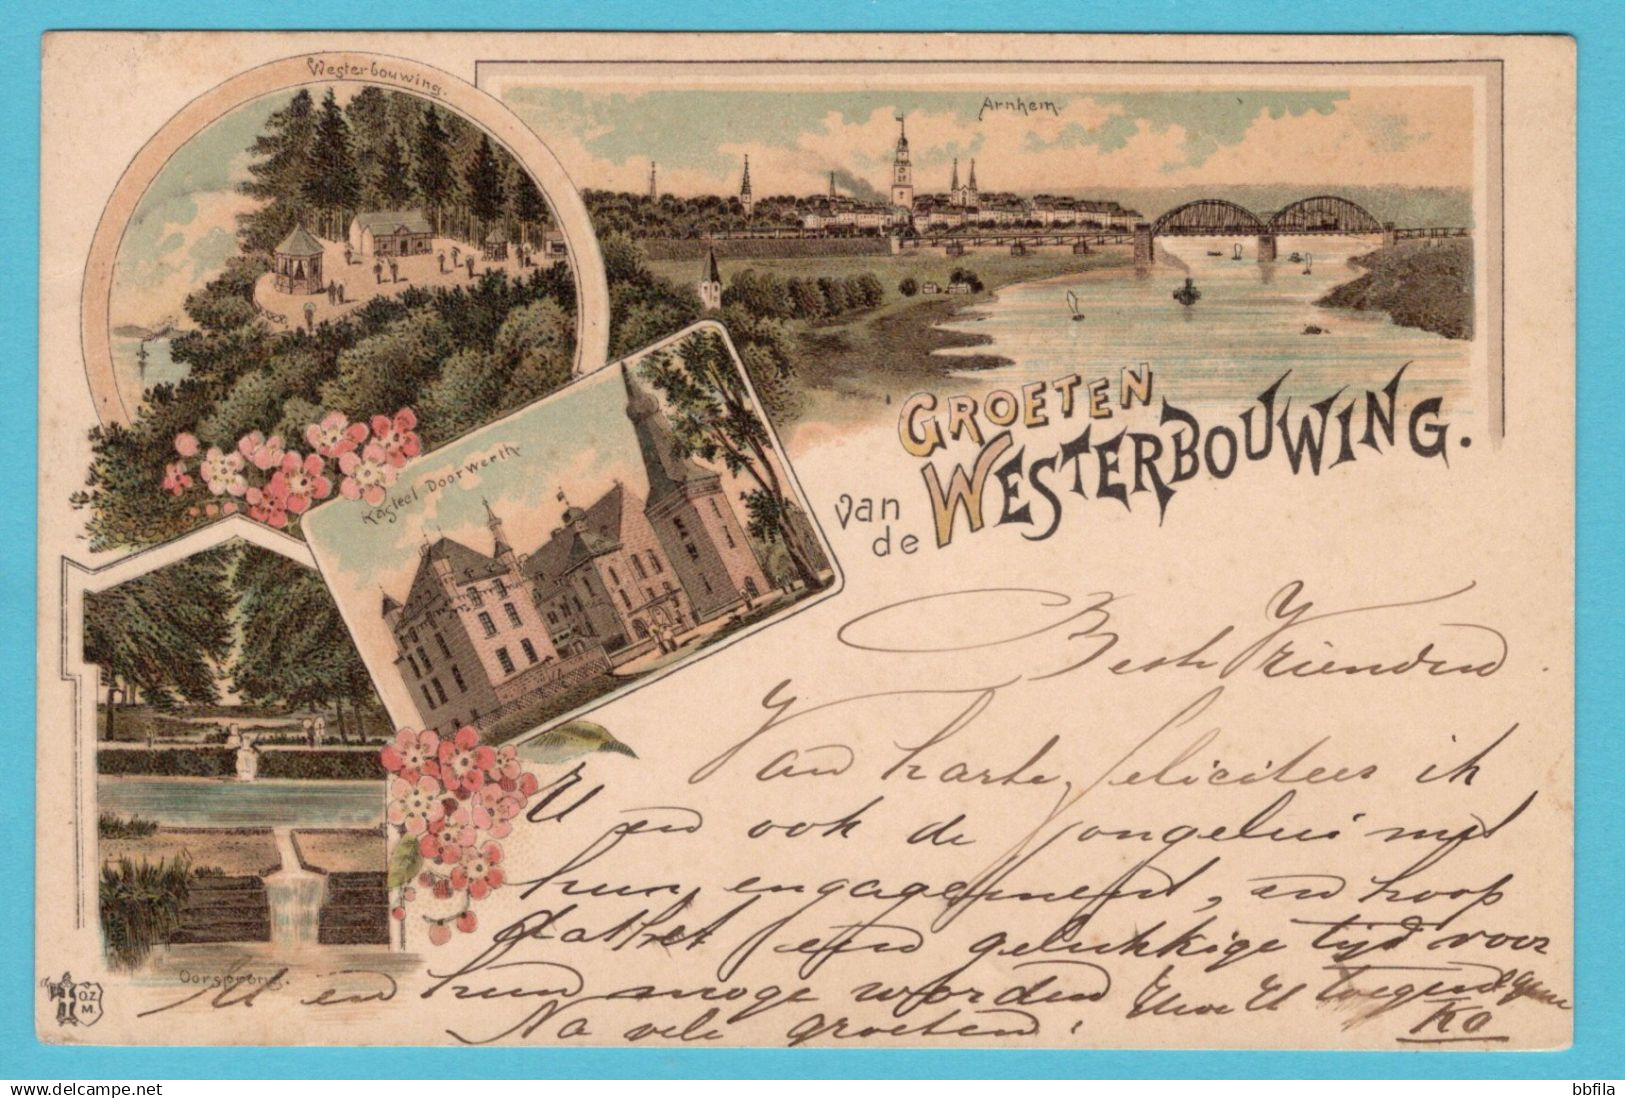 Westerbouwing.
Arnhem.
Kasteel Doorwerth
GROETEN
van de WESTERBOUWING.
Oorsprong.
O.Z.
M.
Beste Vrienden
Van harte feliciteer ik
U en ook de jongelui met
hun engagement, en hoop
dat het een gelukkige tijd voor
U en hun moge worden
Na vele groeten.
Ko
delcampe.net
bbfila